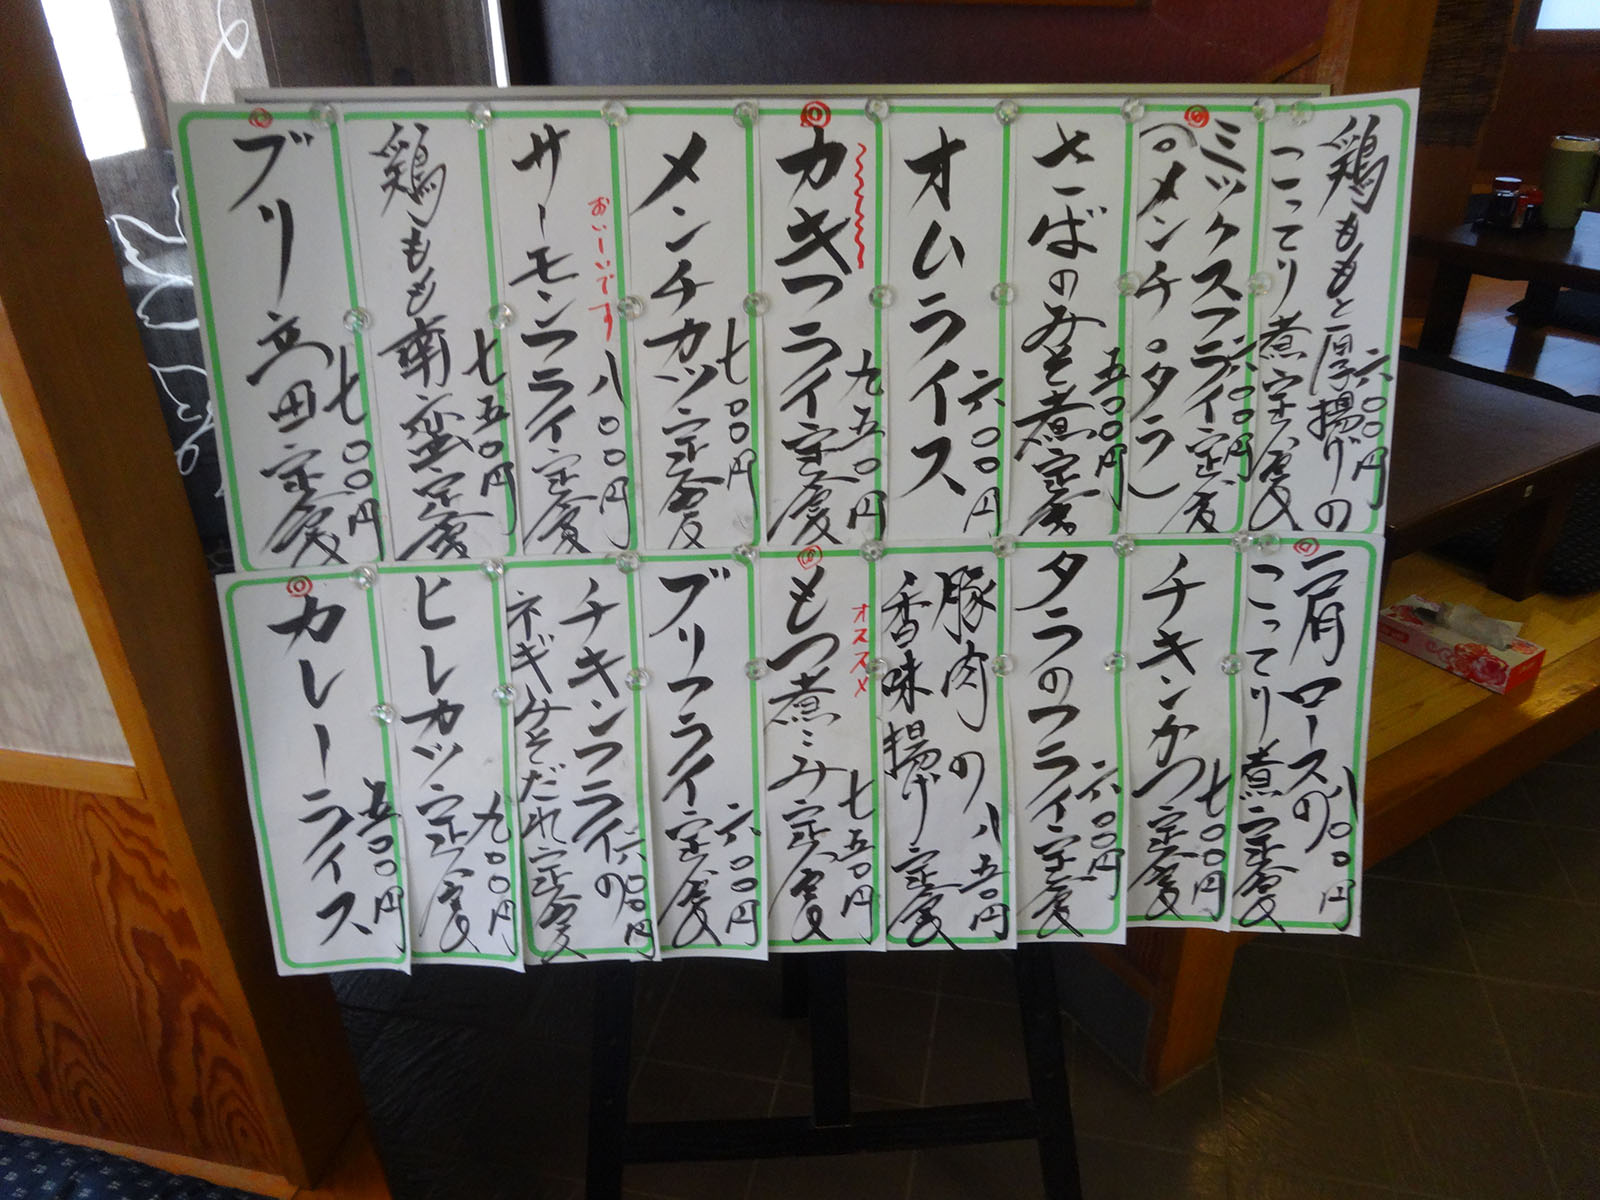 鶏ももと厚揚げの
こってり煮定食
六〇〇円
ミックスフライ定食
(メンチ・タラ)
六〇〇円
さばのみそ煮定食
五〇〇円
オムライス
六〇〇円
カキフライ定食
九五〇円
メンチカツ定食
七〇〇円
サーモンフライ定食
おいしいです
八〇〇円
鶏もも南蛮定食
七五〇円
ブリ立田定食
七〇〇円
肩ロースの
こってり煮定食
八〇〇円
チキンかつ定食
七〇〇円
タラのフライ定食
六〇〇円
豚肉の
香味揚げ定食
八五〇円
もつ煮こみ定食
オススメ
七五〇円
ブリフライ定食
六〇〇円
チキンフライの
ネギみそだれ定食
六〇〇円
ヒレカツ定食
九〇〇円
カレーライス
五〇〇円